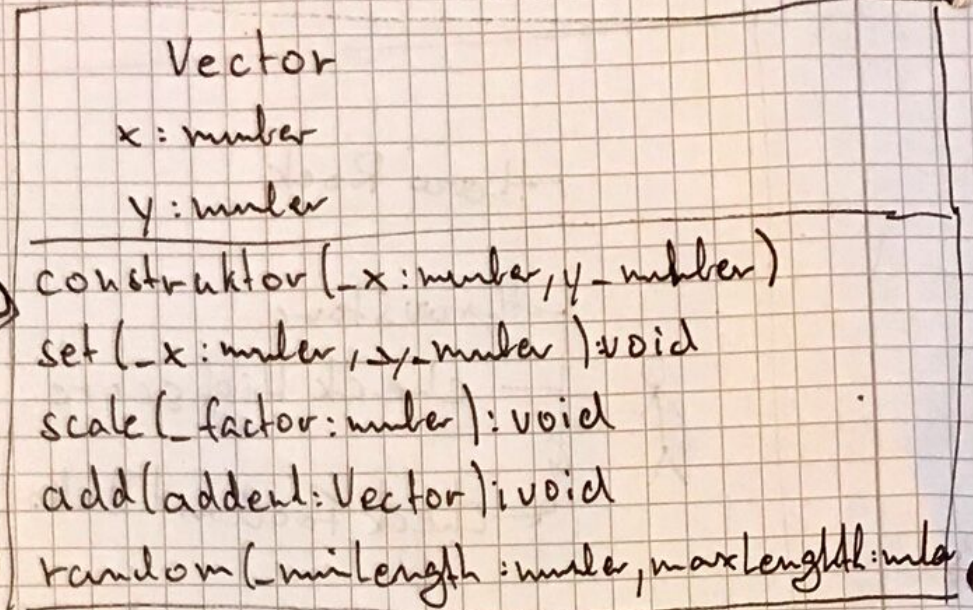 Vector
x : number
y : number
construktor (_x : number, y_number)
set (_x : number, _y_number ) : void
scale (_factor : number) : void
add (addend : Vector) : void
random (_minLength : number, maxLenghth : number